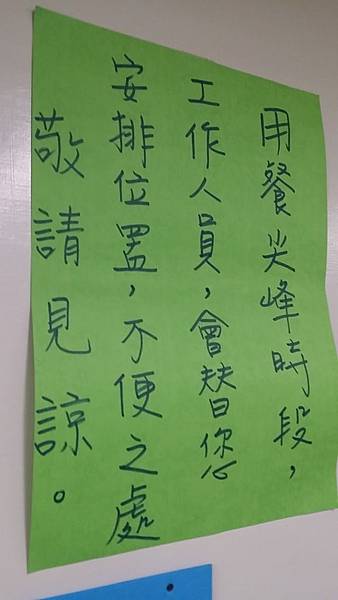 用餐尖峰時段，
工作人員，會替您
安排位置，不便之處
敬請見諒。